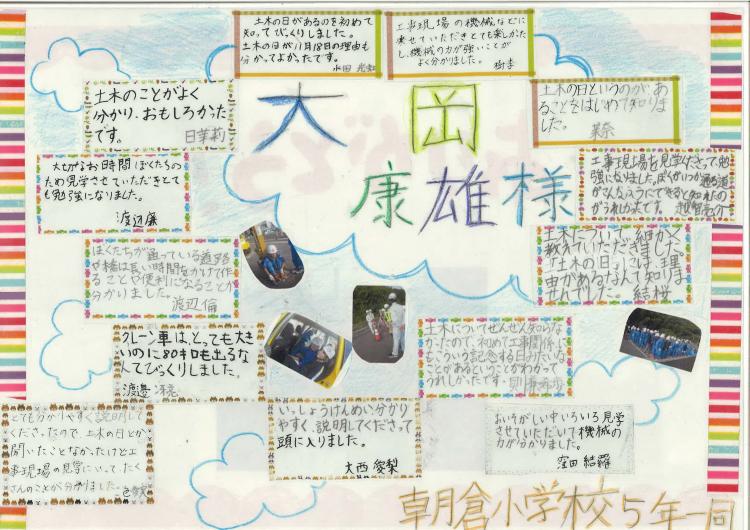 土木の日があるのを初めて
知ってびっくりしました。
土木の日が11月18日の理由も
分かってよかったです。
工事現場の機械などに
乗せていただきとても楽しかた
し、機械の力が強いことが
よく分かりました。
樹李
土木のことがよく
分かり、おもしろかった
です。
日茉莉
大岡
康雄様
土木の日というのが、あ
ることをはじめて知りま
した。
大せつなお時間ぼくたちの
ため見学させていただきとて
も勉強になりました。
渡辺
工事現場を見学ださって勉
強になりました。ぼくがいつも通る道
がうれしかたです。
土木について、細かく
教えていただきました
「土木の日」にけ、理
由があるなんて知りま
せんでした。 結桜
ぼくたちが通っている道路
や橋は長い時間をかけて作
ることや便利になることが
分かりました。
渡辺倫
土木についてぜんぜん知らな
かたので、初めて工事関係に
もこういう記念する日みたいな
ことがあるということがわかって
うれしかったです。
クレーン車は、とっても大き
いのに80キロも出るな
んてびっくりしました。
渡邉
とても分かりやすく説明して
くださったので、土木の日とか
聞いたことなかたけど工
事現場の見学にいってたく
さんのことが分かりました。
いっしょうけんめい分かり
やすく、説明してくださって
頭に入りました。
大西愛梨
おいそがしい中いろいろ見学
させていただいて機械の
力が分かりました。
窪田結羅
朝倉小学校5年一同